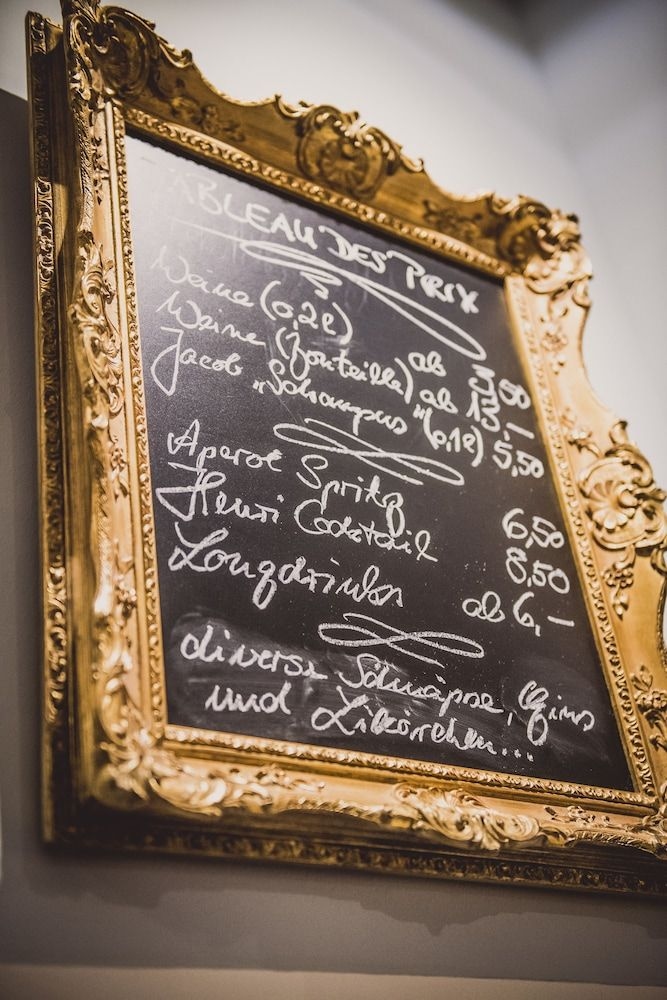 TABLEAU DES PRIX
Weine (0,2l) ab 3,50
Weine (Bouteille) ab 13,—
Jacob „Schampus" (0,1l) 5,50
Aperol Spritz 6,50
Henri Cocktail 8,50
Longdrinks ab 6,—
diverse Schnäpse, Gins
und Likörchen...